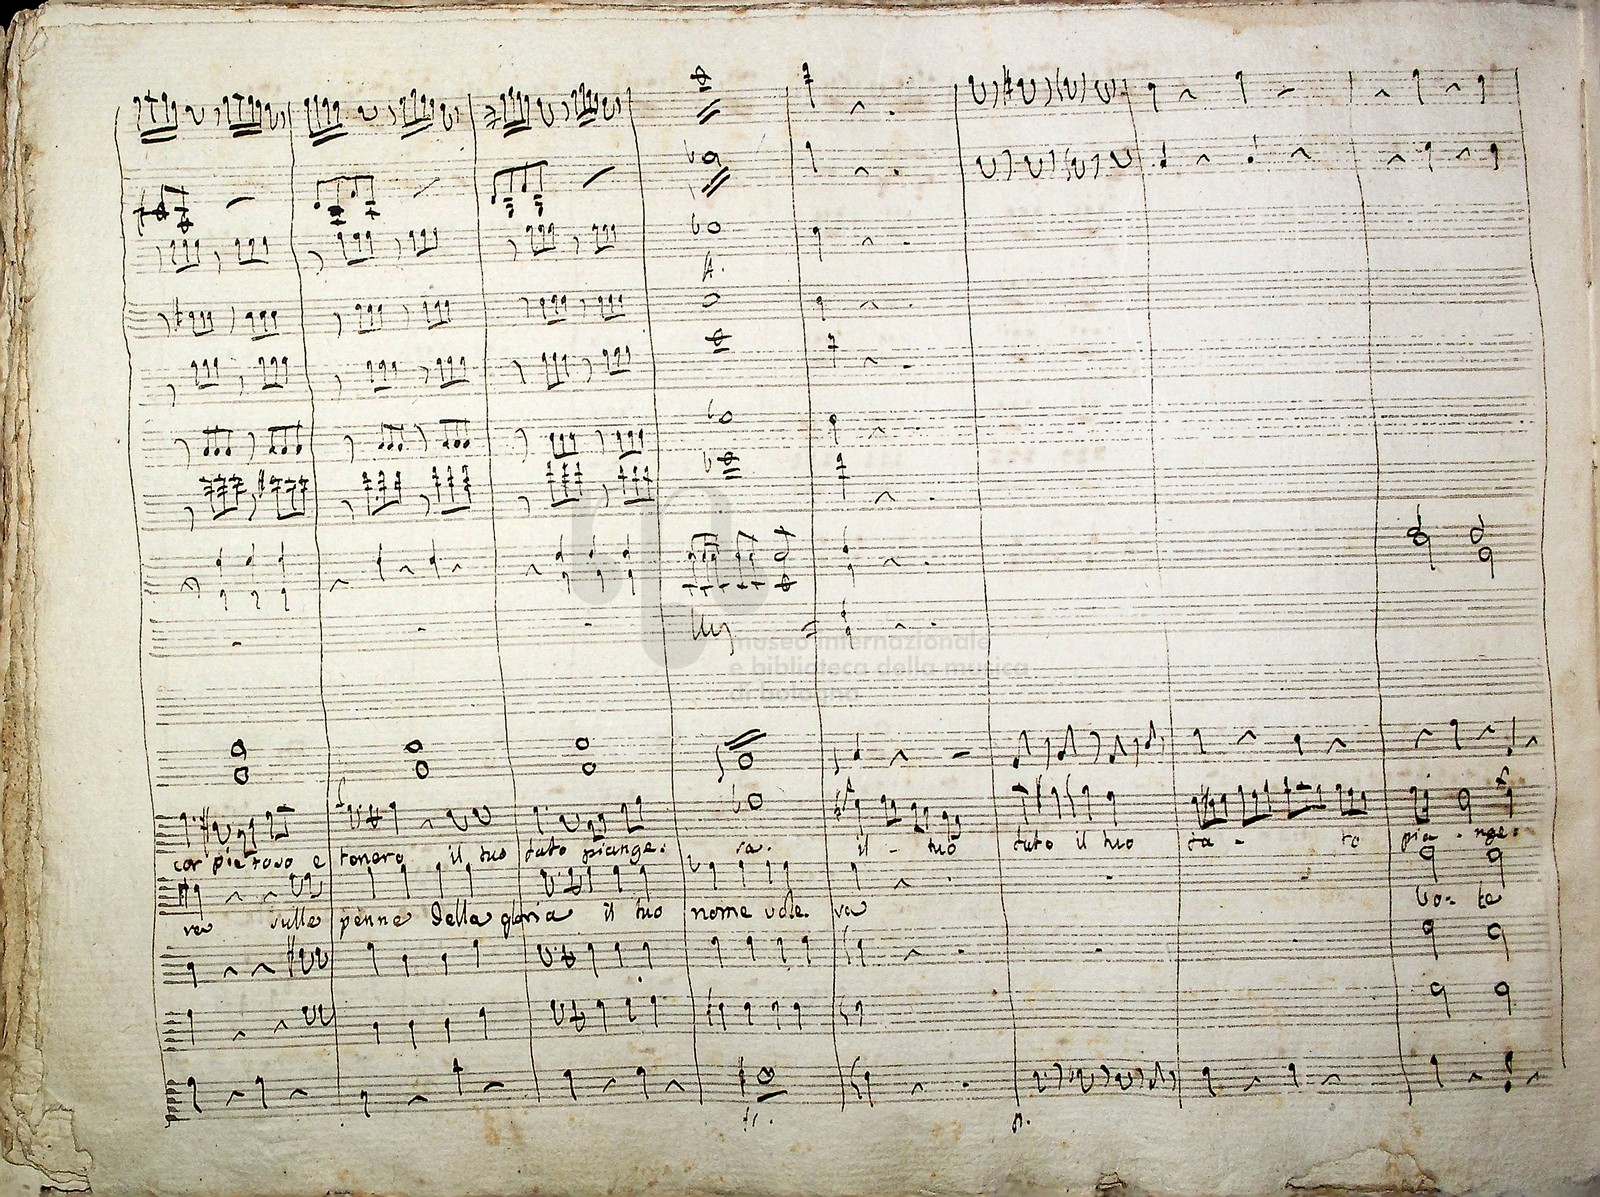 museo internazionale
e biblioteca della musica
di bologna
cor pietoso e tenero il tuo fato piange- ra. il - tuo fato il tuo fa - to pia - nge-
ra sulle penne della gloria il tuo nome vole- ra Vo- te